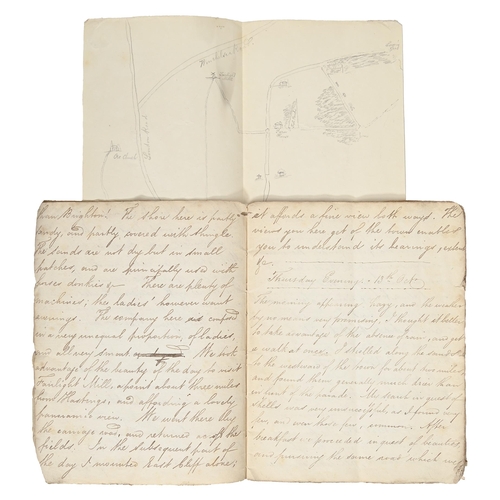 London Road
than Brighton. The shore here is partly
sandy, and partly covered with shingle
The sands are not dry but in small
patches, and are
There are plenty of
machines, the ladies' however want
awnings. The company here
in a very unequal proportion, of ladies,
and all very smart We took
advantage of the beauty of the day to visit
Fairlight Mill, a point about three miles
from Hastings, and affording a lovely
panoramic view. We went there by
the carriage road, and returned across the
fields. In the subsequent part of
the day I mounted East Cliff alone,
it affords a fine view both ways. The
views you here get of the town enables
you to understand its bearings, extent
&c.
Thursday Evening. 13th Oct.
The morning opening hazy, and the weather
by no means very promising, I thought it better
to take advantage of the absence of rain, and get
a walk at once. I strolled along the sands
to the westward of the town for about two miles
and found them generally much drier than
in front of the parade. The search in quest of
shells was very unsuccessful as I found very
few, and even those few, common. After
breakfast I proceeded in quest of beauties
and pursuing the same road which